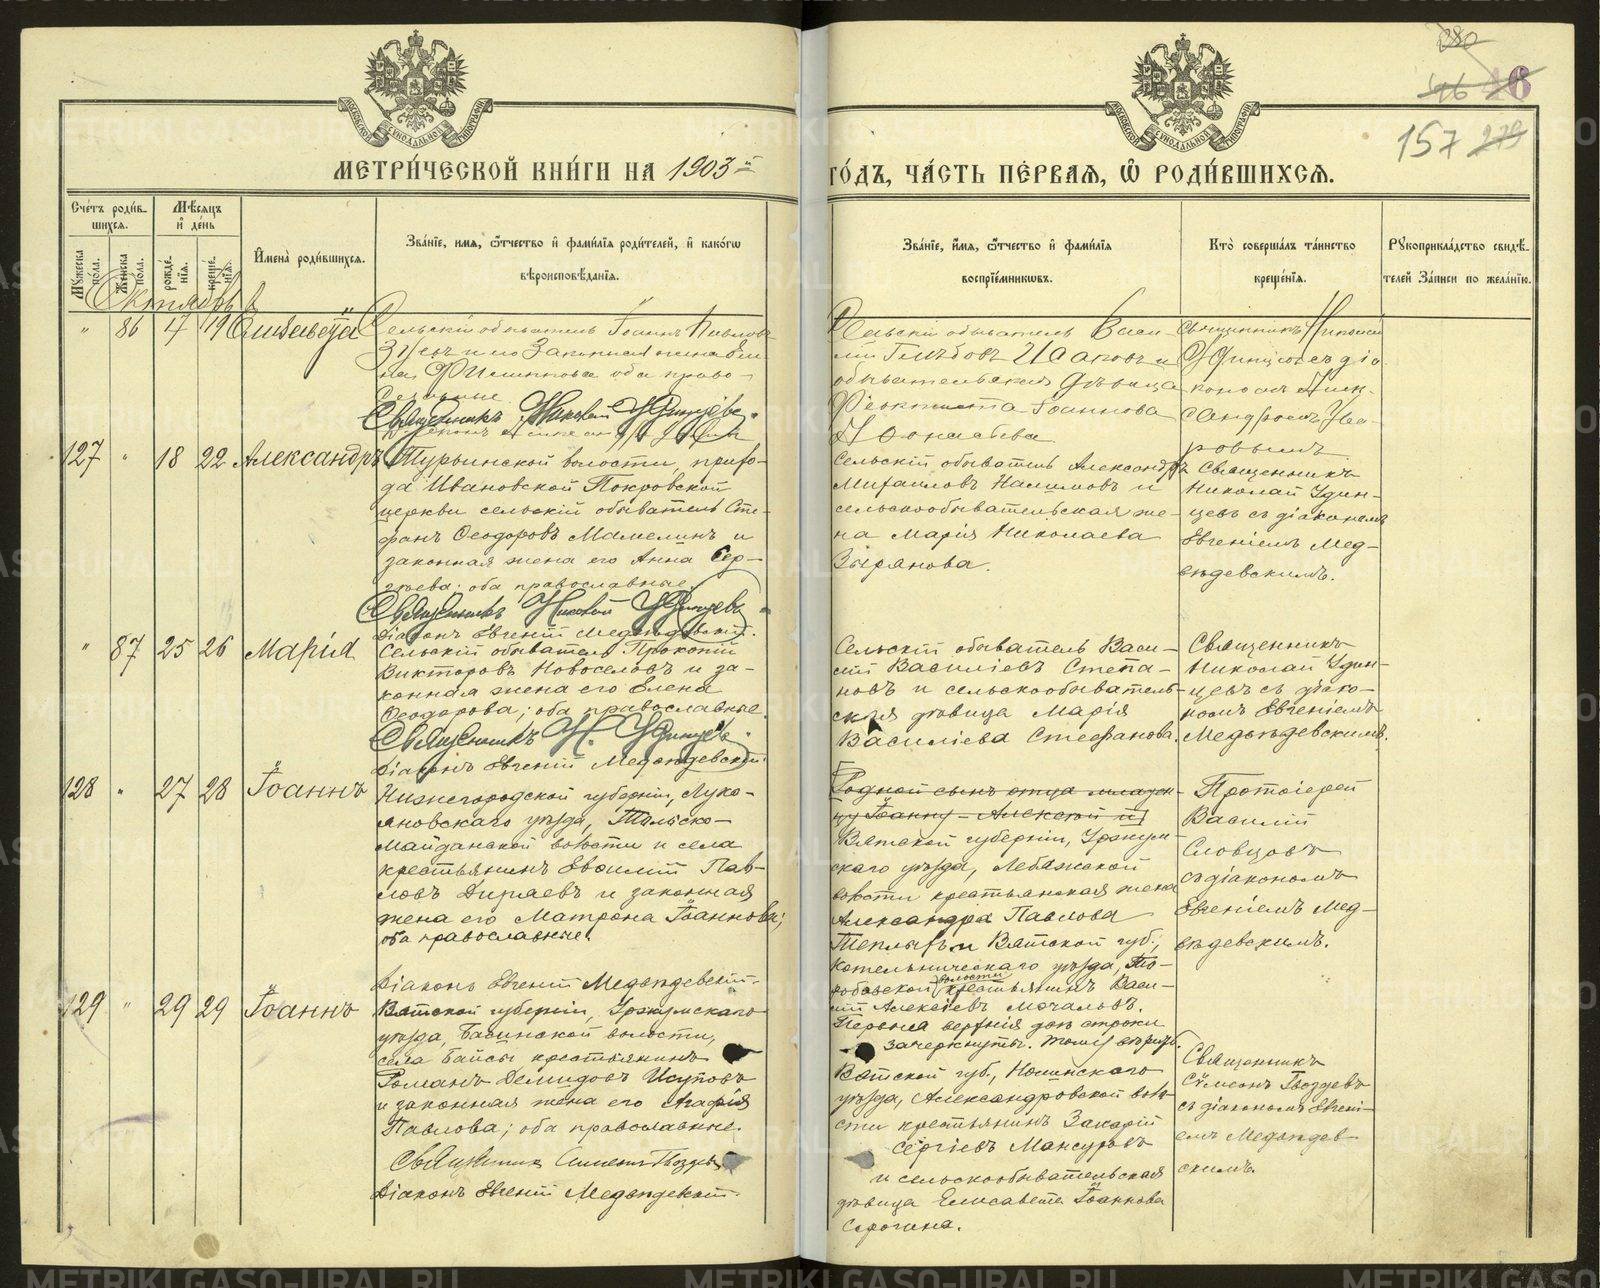 280
146 46
157 279
МОСКОВСКОЙ СѴНОДАЛЬНОЙ ТИПОГРАФІИ
МОСКОВСКОЙ СѴНОДАЛЬНОЙ ТИПОГРАФІИ
МЕТРИ́ЧЕСКОЙ КНИ́ГИ НА 1903й
ГО́ДЪ, ЧА́СТЬ ПЕ́РВАЯ, Ѡ҆ РОДИ́ВШИХСЯ.
Сче́тъ роди́вшихся.
Мѣ́сяцъ и҆ де́нь
Мꙋ́жеска по́ла.
Же́нска по́ла.
рожде́нїя.
креще́нїя.
И҆мена̀ роди́вшихся.
Зва́нїе, и҆мя, ѻ҆́тчество и҆ фами́лїя роди́телей, и҆ како́гѡ
вѣроисповѣ́данїя.
Зва́нїе, и҆́мя, ѻ҆́тчество и҆ фами́лїя
воспрїе́мникѡвъ.
Кто̀ соверша́лъ та́инство
креще́нїя.
Рꙋкоприкла́дство свидѣ́-
телей за́писи по жела́нїю.
Октябрь
" 86 17 19 Елисавета
Сельскій обыватель Іоаннъ Павловъ
и законная жена Еле
на Филиппова оба право-
славные
Священникъ Николай Удинцевъ.
Сельскій обыватель Васи-
лій Глѣбовъ Исаковъ и
обывательская дѣвица
Феоктиста Іоаннова
Священникъ Николай
Удинцевъ съ діа
кономъ Алек-
сандромъ Ува-
ровымъ
127 " 18 22 Александръ
Турьинской волости, прихо-
да Ивановской Покровской
церкви сельскій обыватель Сте-
фанъ Ѳеодоровъ Мамелинъ и
законная жена его Анна Сер-
гѣева; оба православные.
Священникъ Николай Удинцевъ
Діаконъ Евгеній Медвѣдевскій.
Сельскій обыватель Александръ
Михаиловъ Налимовъ и
сельскообывательская же-
на Марія Николаева
Зырянова.
Священникъ
Николай Удин-
цевъ съ діакономъ
Евгеніемъ Мед-
вѣдевскимъ.
" 87 25 26 Марія
Сельскій обыватель Прокопій
Викторовъ Новоселовъ и за-
конная жена его Елена
Ѳеодорова; оба православные.
Священникъ Н. Удинцевъ.
Діаконъ Евгеній Медвѣдевскій.
Сельскій обыватель Васи-
лій Василіевъ Степа-
новъ и сельскообыватель-
ская дѣвица Марія
Василіева Стефанова.
Священникъ
Николай Удин-
цевъ съ діако-
номъ Евгеніемъ
Медвѣдевскимъ.
128 " 27 28 Іоаннъ
Нижегородской губерніи, Луко-
яновскаго уѣзда, Тольско-
Майданской волости и села
крестьянинъ Евѳимій Пав-
ловъ Ширяевъ и законная
жена его Матрона Іоаннова;
оба православные.
Діаконъ Евгеній Медвѣдевскій.
Родной сынъ отца младен-
цу Іоанну - Алексѣй и
Вятской губерніи, Уржум-
скаго уѣзда, Лебяжской
волости крестьянская жена
Александра Павлова
Теплыхъ и Вятской губ.,
Котельническаго уѣзда, То-
робовской волости крестьянинъ Васи-
лій Алексѣевъ Мочаловъ.
Первыя верхнія двѣ строки
зачеркнуты.
Протоіерей
Василій
Словцовъ
съ діакономъ
Евгеніемъ Мед-
вѣдевскимъ.
129 " 29 29 Іоаннъ
Вятской губерніи, Уржумскаго
уѣзда, Байсинской волости,
села Байсы крестьянинъ
Романъ Демидовъ Исуповъ
и законная жена его Агафія
Павлова; оба православные.
Священникъ Симеонъ Гвоздевъ
Діаконъ Евгеній Медвѣдевскій.
Вятской губ., Нолинскаго
уѣзда, Александровской воло-
сти крестьянинъ Захарій
Сергіевъ Мансуровъ
и сельскообывательская
дѣвица Елисавета Іоаннова
Сорогина.
Священникъ
Сѵмеонъ Гвоздевъ
съ діакономъ Евгені-
емъ Медвѣдев-
скимъ.
METRIKI.GASO-URAL.RU